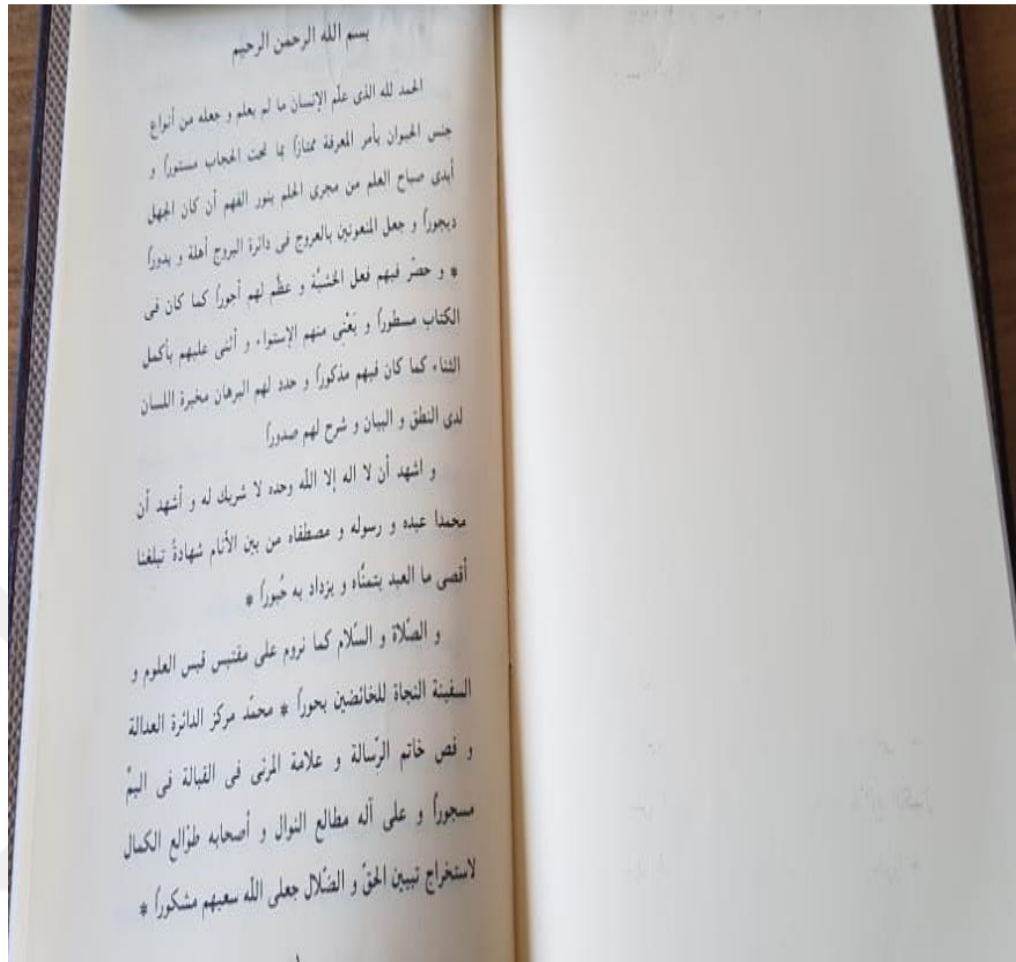 بسم الله الرحمن الرحيم
الحمد لله الذى علّم الإنسان ما لم يعلم و جعله من أنواع
جنس الحيوان بأمر المعرفة ممتازاً بما تحت الحجاب مستوراً و
أبدى صباح العلم من مجرى الحلم بنور الفهم أن كان الجهل
ديجوراً و جعل المنعوتين بالعروج فى دائرة البروج أهلة و بدوراً
* و حصّر فيهم فعل الخشيّة و عظّم لهم أجوراً كما كان فى
الكتاب مسطوراً و يَعْنِى منهم الإستواء و أثنى عليهم بأكمل
الثناء كما كان فيهم مذكوراً و حدد لهم البرهان مخبرة اللسان
لدى النطق و البيان و شرح لهم صدوراً
و اشهد أن لا اله إلا اللّه وحده لا شريك له و أشهد أن
محمدا عبده و رسوله و مصطفاه من بين الأنام شهادةً تبلغنا
أقصى ما العبد يتمنّاه و يزداد به حُبوراً *
و الصّلاة و السّلام كما نروم على مقتبس قبس العلوم و
السفينة النجاة للخائضين بحوراً * محمّد مركز الدائرة العدالة
و فص خاتم الرّسالة و علامة المرئى فى القبالة فى اليمّ
مسجوراً و على آله مطالع النوال و أصحابه طوْالع الكمال
لاستخراج تبيين الحقّ و الضّلال جعلى اللّه سعيهم مشكوراً *